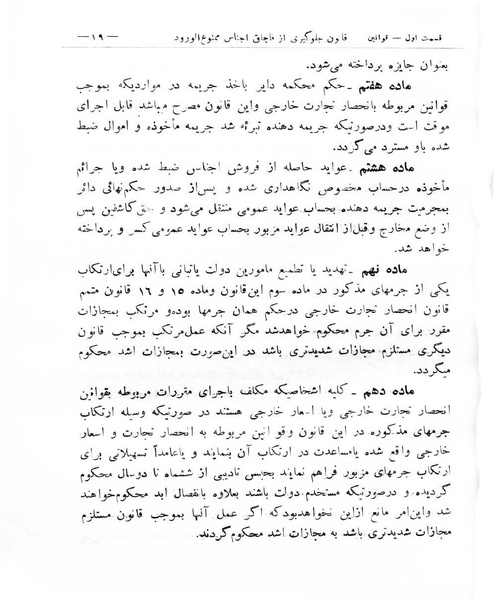 قسمت اول — قوانین قانون جلوگیری از قاچاق اجناس ممنوع‌الورود — ۱۹ —
بعنوان جایزه پرداخته می‌شود.
ماده هفتم ـ حکم محکمه دایر باخذ جریمه در مواردیکه بموجب
قوانین مربوطه بانحصار تجارت خارجی واین قانون مصرح میباشد قابل اجرای
موقت است ودرصورتیکه جریمه دهنده تبرئه شد جریمه مأخوذه و اموال ضبط
شده باو مسترد می‌گردد.
ماده هشتم ـ عواید حاصله از فروش اجناس ضبط شده ویا جرائم
مأخوذه درحساب مخصوص نگاهداری شده و پس‌از صدور حکم‌نهائی دائر
بمجرمیت جریمه دهنده بحساب عواید عمومی منتقل می‌شود و حق‌کاشفین پس
از وضع مخارج وقبل‌از انتقال عواید مزبور بحساب عواید عمومی‌کسر و پرداخته
خواهد شد.
ماده نهم ـ تهدید یا تطمیع مامورین دولت یاتبانی باآنها برای‌ارتکاب
یکی از جرمهای مذکور در ماده سوم این‌قانون وماده ۱۵ و ۱۶ قانون متمم
قانون انحصار تجارت خارجی درحکم همان جرمها بوده‌و مرتکب بمجازات
مقرر برای آن جرم محکوم‌خواهدشد مگر آنکه عمل‌مرتکب بموجب قانون
دیگری مستلزم مجازات شدیدتری باشد در این‌صورت بمجازات اشد محکوم
میگردد.
ماده دهم ـ کلیه اشخاصیکه مکلف باجرای مقررات مربوطه بقوانین
انحصار تجارت خارجی ویا اسعار خارجی هستند در صورتیکه وسیله ارتکاب
جرمهای مذکوره در این قانون وقوانین مربوطه به انحصار تجارت و اسعار
خارجی واقع شده یامساعدت در ارتکاب آن بنمایند و یاعامداً تسهیلاتی برای
ارتکاب جرمهای مزبور فراهم نمایند بحبس تادیبی از ششماه تا دوسال محکوم
گردیده و درصورتیکه مستخدم دولت باشند بعلاوه بانفصال ابد محکوم‌خواهند
شد واین‌امر مانع ازاین نخواهدبودکه اگر عمل آنها بموجب قانون مستلزم
مجازات شدیدتری باشد به مجازات اشد محکوم‌گردند.